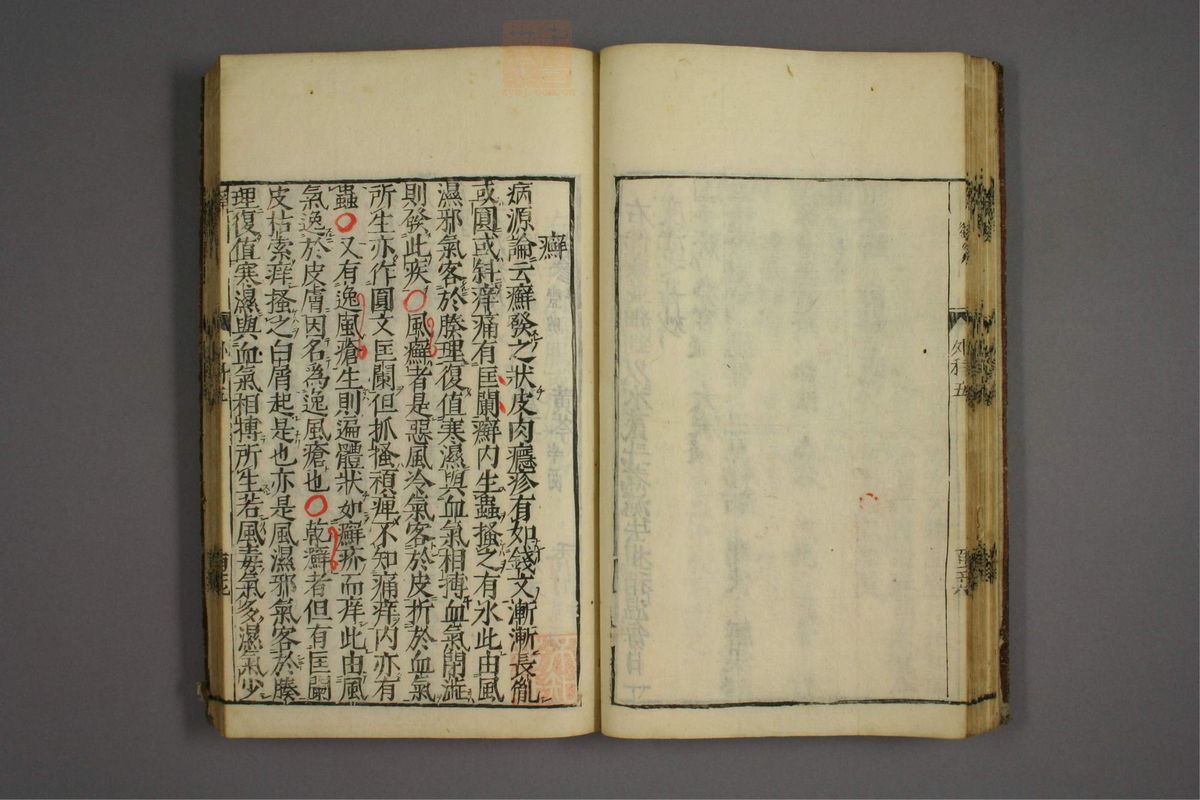 外科五
癬
病源論云癬發之狀皮肉癮疹有如錢文漸漸長
或圓或斜痒痛有匡闌癬内生蟲搔之有氷此由風
濕邪氣客於腠理復值寒濕與血氣相搏血氣閉澁
則發此疾○風癬者是惡風冷氣客於皮折於血氣
所生亦作圓文匡闌但抓搔頑痺不知痛痒内亦有
蟲○又有逸風瘡生則遍體狀如癬疥而痒此由風
氣逸於皮膚因名為逸風瘡也○乾癬者但有匡闌
皮枯索痒搔之白屑起是也亦是風濕邪氣客於腠
理復值寒濕與血氣相搏所生若風毒氣多濕氣少